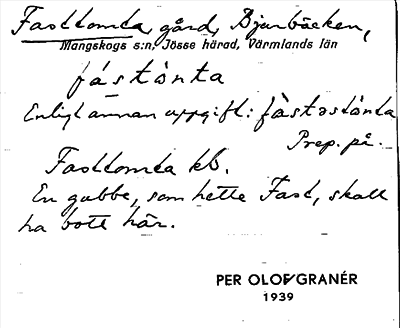 Fasttomta, gård, Bjurbäcken,
Mangskogs s:n, Jösse härad, Värmlands län
fástònta
Enligt annan uppgift: fàstəstónta
Prep. på.
Fasttomta kb.
En gubbe, som hette Fast, skall
ha bott här.
PER OLOF GRANÉR
1939